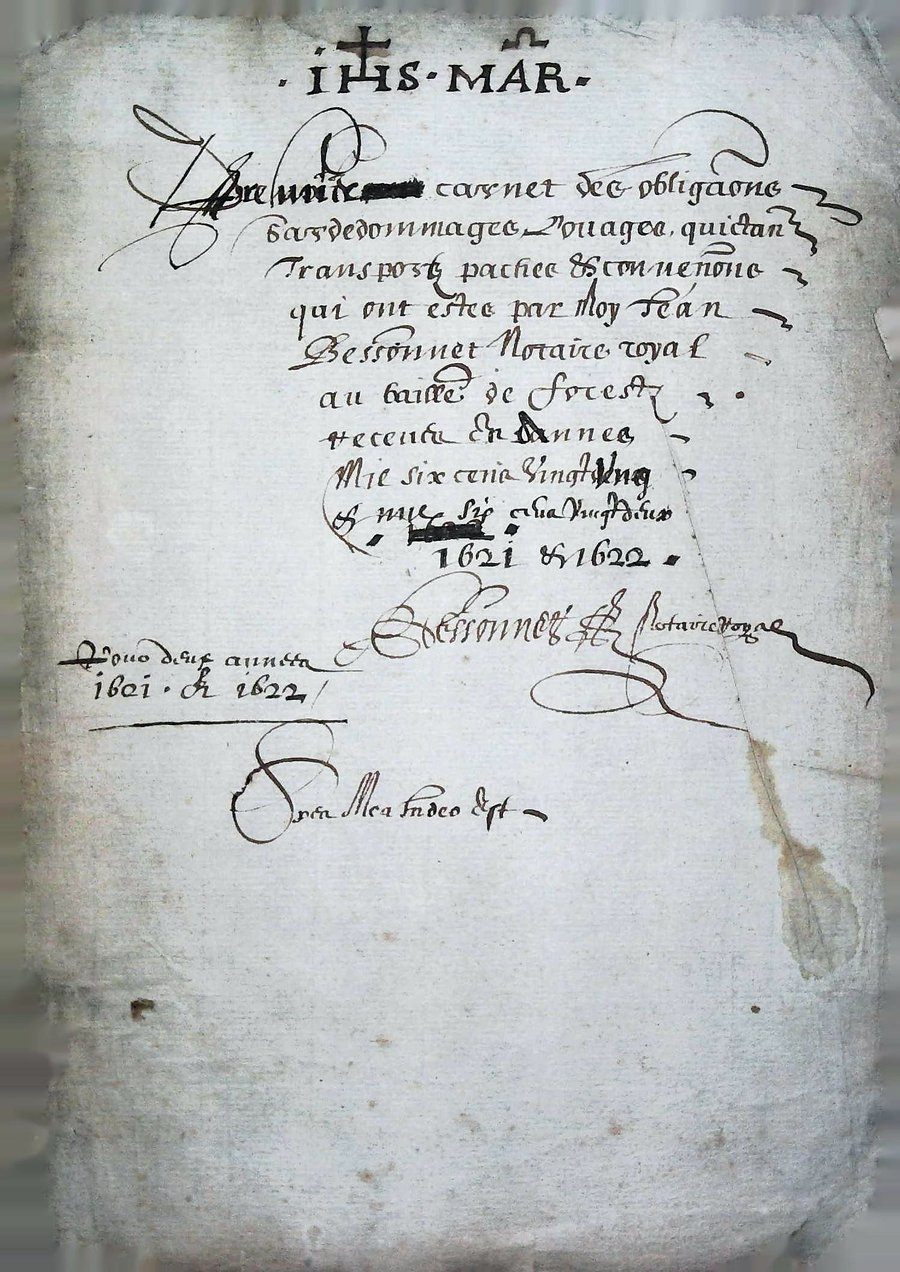 · IHS · MAR ·
Premier carnet des obligaōns
Gardedommages, Louages, quictan
Transportz paches & convenōns
qui ont estes par Moy Iean
Bessonnet Notaire royal
au baille de forestz
receues En Annees
Mil six cens Vingt Ung
& mil six cens Vingt deux
1621 & 1622 .
Bessonnet Notaire Royal
Pour deux annees
1621 . & 1622
Spea Mea In deo Est